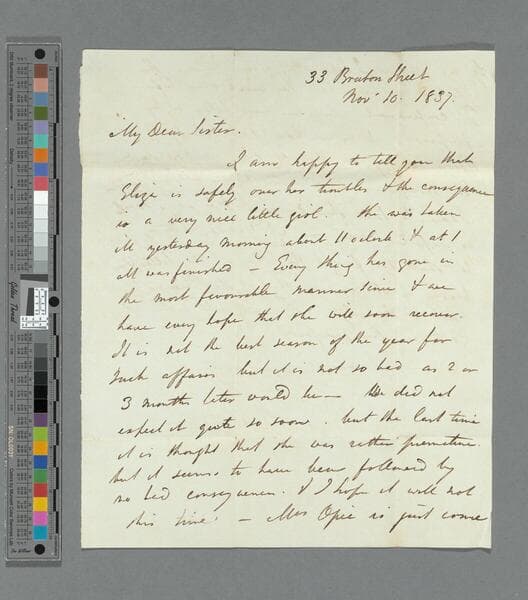 33 Bruton Street
Nov 10. 1837.
My Dear Sister.
I am happy to tell you that
Eliza is safely over her troubles & the consequence
is a very nice little girl. She was taken
ill yesterday morning about 11 oclock. & at 1
all was finished — Every thing has gone in
the most favourable manner since & we
have every hope that she will soon recover.
It is not the best season of the year for
such affairs but it is not so bad as 2 or
3 months later would be — We did not
expect it quite so soon. but the last time
it is thought that she was rather premature
but it seems to have been followed by
no bad consequences. & I hope it will not
this time — Mrs Opie is just come